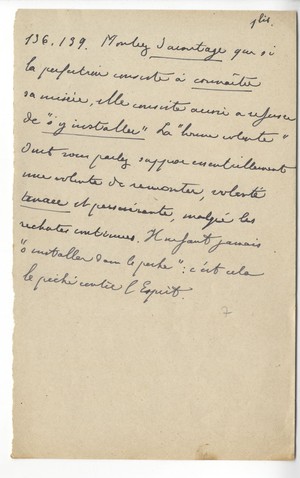 1bis.
136.139. Montrez davantage que si
la perfection consiste à connaître
sa misère, elle consiste aussi à refuser
de "s'y installer" La "bonne volonté"
dont vous parlez suppose essentiellement
une volonté de remonter, volonté
tenace et persévérante, malgré les
rechutes continues. Il ne faut jamais
"s'installer dans le péché" : c'est cela
le péché contre l'Esprit.
7